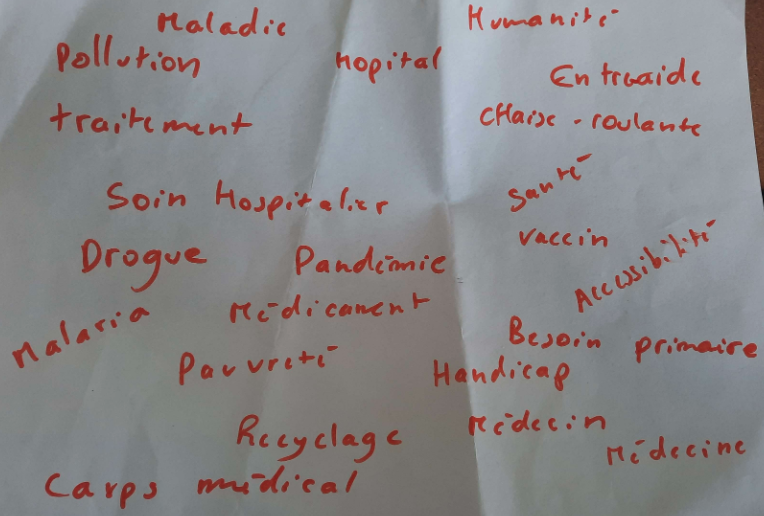 Maladie Humanité
Pollution Hopital Entreaide
traitement CHaise-roulante
Soin Hospitalier Santé
Drogue Pandémie vaccin Accessibilité
Malaria Médicament
Pauvreté Handicap Besoin primaire
Recyclage Médecin Médecine
Carps médical